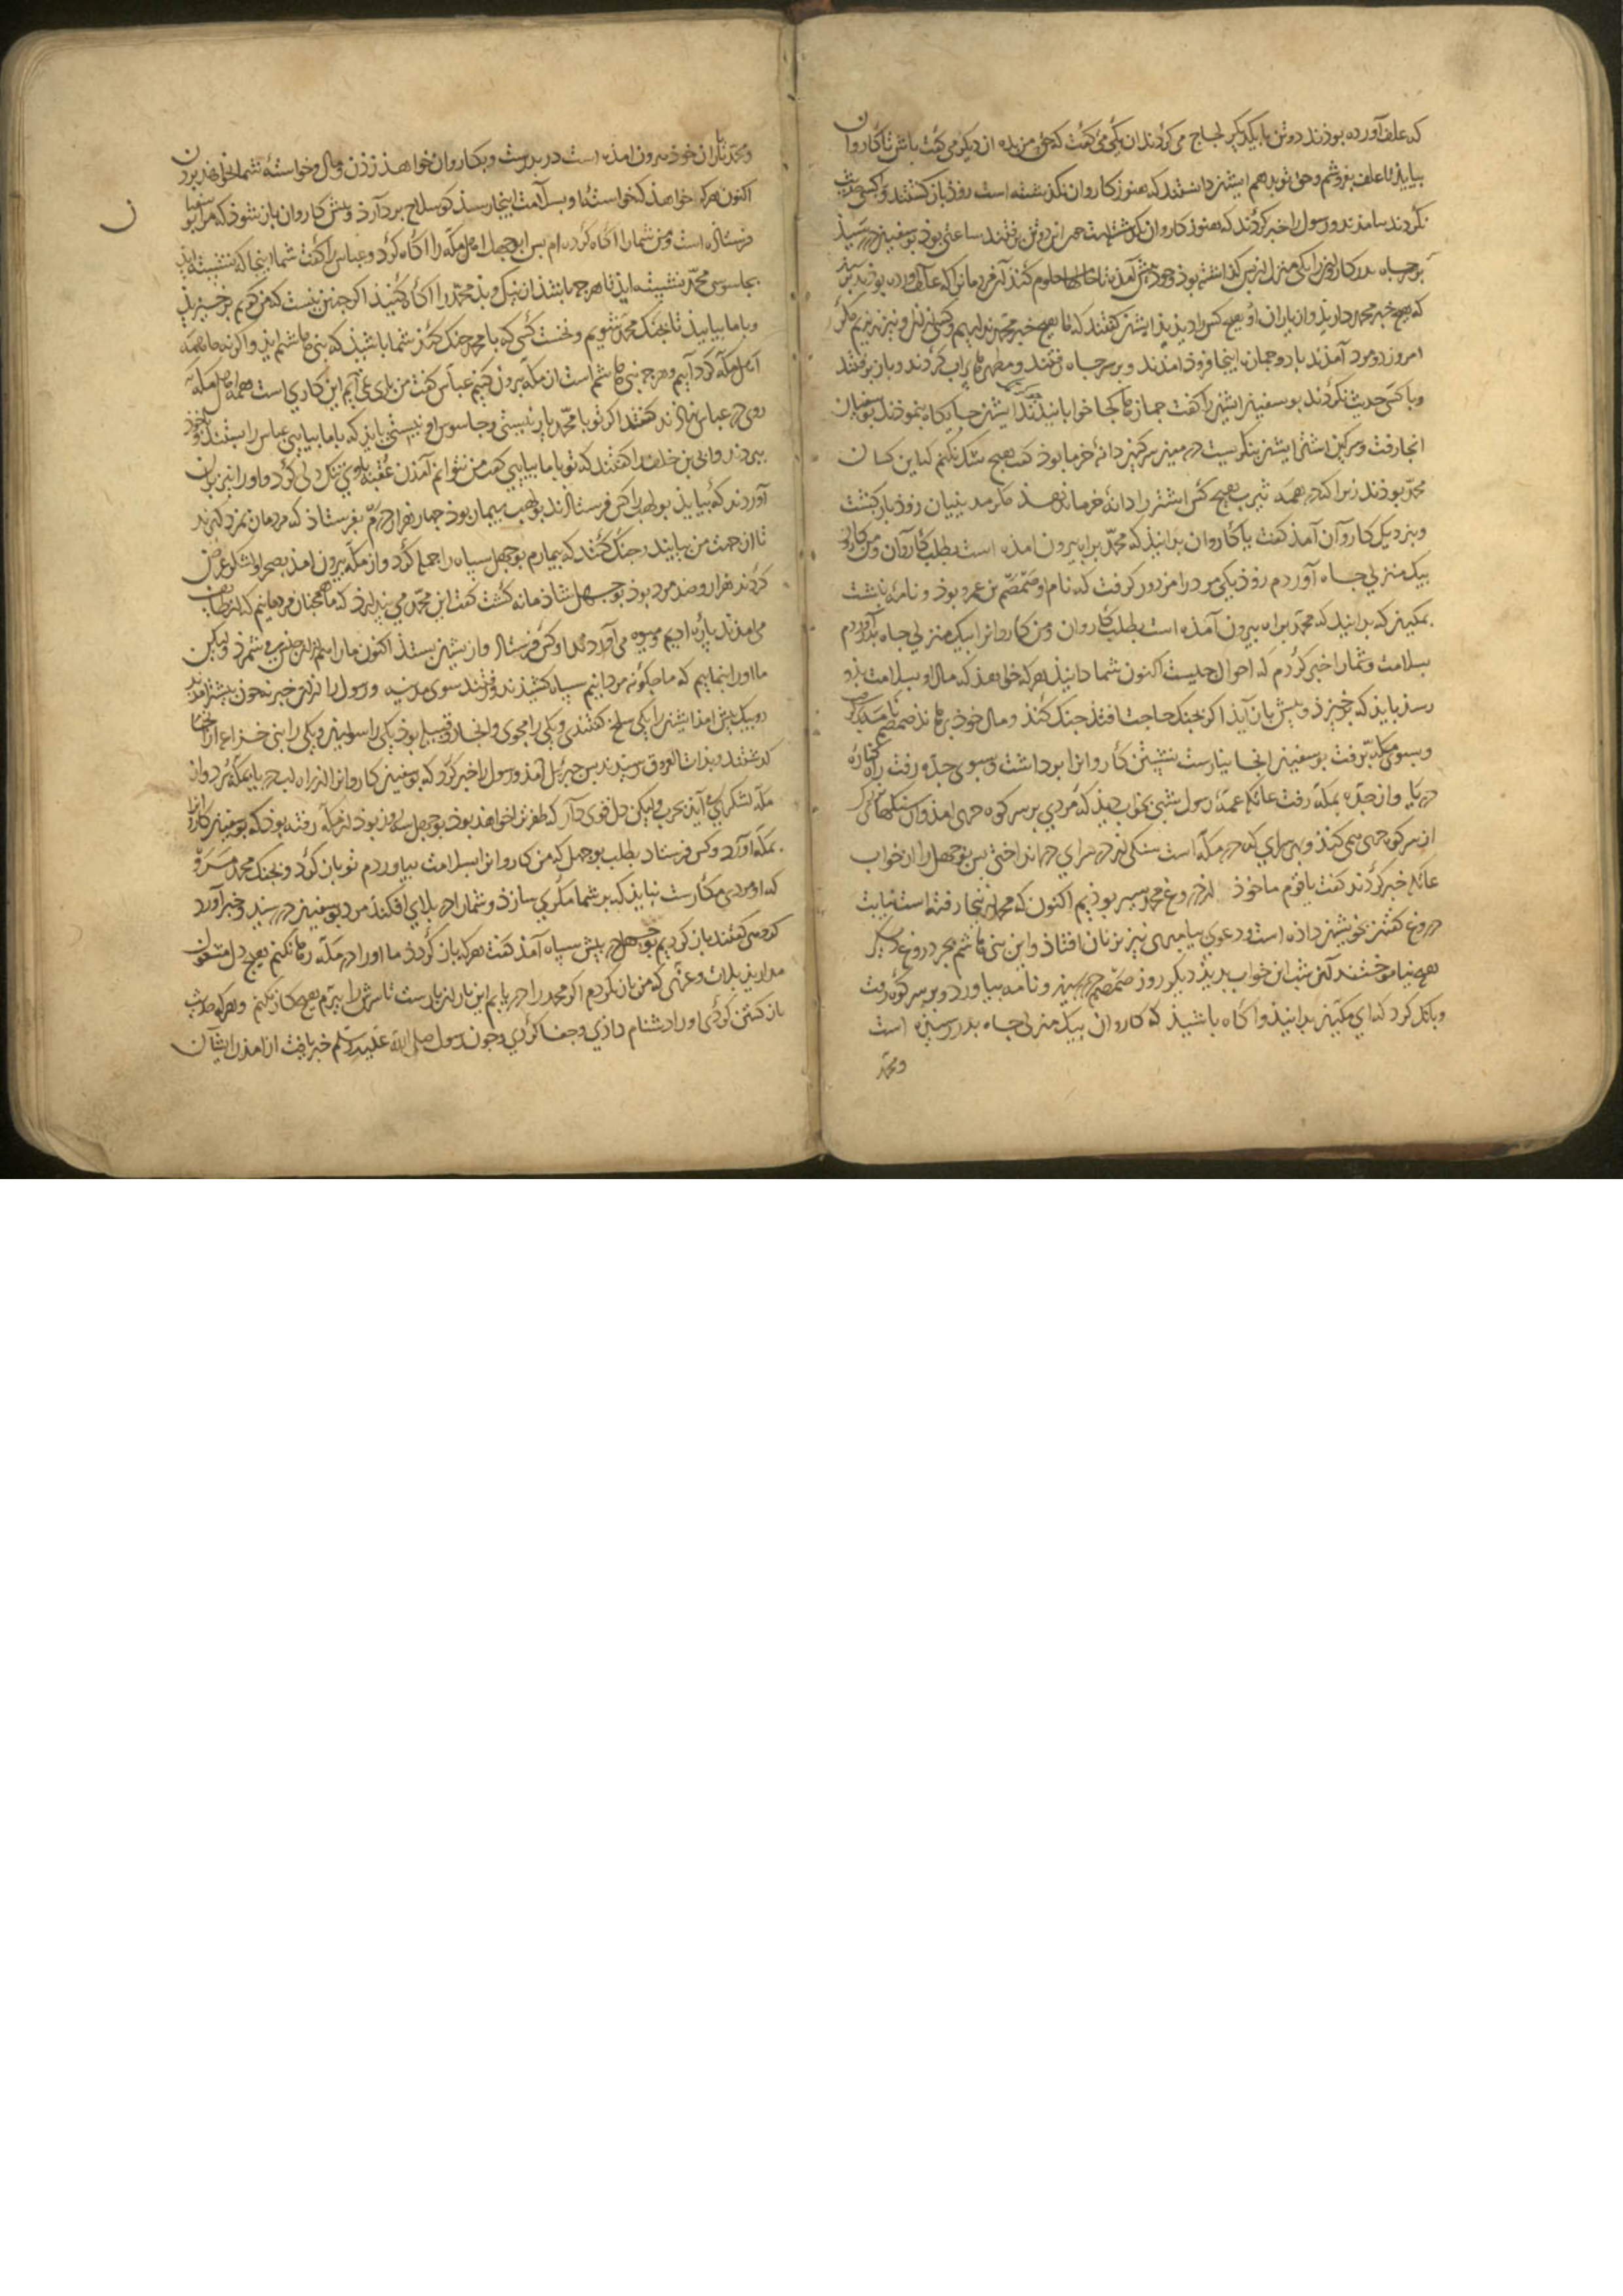 که علف آورده بوذند دو تن با یکدیگر لجاج می کردند ان یکی می کفت که حق من بده ان دیکر می کفت باش تا کاروان
بیاید تا علف بفروشم و حق تو بدهم ایشنر دانستند که هنوز کاروان نکذشته است زود باز کشتند و با کس حدیث
نکردند بیامدند و رسول را خبر کردند که هنوز کاروان نکذشته است چون این دو تن برفتند ساعتی بود بوسفینر در رسیذ
بر سر چاه بدر کاروانرا یکی منزل از پس کذاشته بوذ و خود پیش آمده تا حالها معلوم کند آن مردمانرا که علف آورده بوذند
که هیچ خبر محمد دارید و از یاران او هیچ کس را دیدید ایشنر کفتند که ما هیچ خبر محمد نداریم و کس را ندیدیم مکر
امروز دو مرد آمدند با دو جمازه اینجا فروذ امدند و بر سر چاه رفتند و مطهره پر اب کردند و باز برفتند
و با کس حدیث نکردند بوسفینر ایشنر را کفت جمازها کجا خوابانیدند ایشنر جایکاه بنموذند بوسفیان
انجا رفت و سرکین اشتر ایشنر بنکریست در میان سرکین دانه خرما بوذ کفت هیچ شک نکنم که این کسان
محمد بوذند زیرا که در همه عرب هیچ کس اشتر را دانه خرما ندهذ مکر مدینیان زوذ باز کشت
و بنزدیک کاروان آمذ کفت یا کاروان بدانید که محمد براه بیرون امذه است بطلب کاروان و من کاروانرا
بیک منزلی چاه آوردم زوذ یکی مرد را مزدور کرفت که نام او ضمضم بن عمرو بوذ و نامه نبشت
بمکینر که بدانید که محمد براه بیرون آمذه است بطلب کاروان و من کاروانرا بیک منزلی چاه بدر آوردم
بسلامت و شما را خبر کردم که احوال چیست اکنون شما دانید هر که خواهذ که مال او بسلامت بذو
رسذ باید که برخیزذ و پیش باز آید اکر بجنک حاجت افتذ جنک کنذ و مال خود برهانذ ضمضم نامه بستد
و بسوی مکه برفت بوسفینر انجا نیارست نشستن کاروانرا برداشت و بسوی جده رفت راه کناره
دریا و از جده بمکه رفت عاتکه عمه رسول شبی بخواب دید که مردی بر سر کوه همی امذ و ان سنکها بزرک
از سر کوه همی کند و بهر سرای که در مکه است سنکی در سرای می انداختی پس بوجهل را از خواب
عاتکه خبر کردند کفت یا قوم ما خود از دروغ محمد سیر بوذیم اکنون که محمد از اینجا رفته است نیابت
دروغ کفتن بخویشنر داده است و دعوی پیامبری نیز بزنان افتاذ و این بنی هاشم بجز دروغ دیکر
هیچ نیاموختند آن شب این خواب بدید دیکر روز ضمضم در رسید و نامه بیاورد و بر سر کوه رفت
و بانک کرد که ای مکینر بدانید و اکاه باشید که کاروان بیک منزلی چاه بدر رسیده است
و محمد
و محمد با یاران خوذ بیرون امذه است در بدرست و بکاروان خواهذ زدن و مال و خواسته شما بخواهذ بردن
اکنون هر که خواهذ که خواسته او بسلامت اینجا رسذ کو سلاح بردارد و پیش کاروان باز شوذ که مرا بوسفیان
فرستاده است و من شما را اکاه کرده ام پس ابوجهل اهل مکه را اکاه کرد و عباس را کفت شما اینجا که نشسته اید
بجاسوسی محمد نشسته اید تا هر چه ما باشد از نیک و بد محمد را اکاه کنید اکر چنین نیست که من کویم برخیزید
و با ما بیایید تا بجنک محمد شویم و نخست کسی که با محمد جنک کند شما باشید که بنی هاشم اید و اکر نه ما همه
اهل مکه کرد آییم و هر چه بنی هاشم است از مکه بیرون کنیم عباس کفت من باری نمی آیم این کاری است همه اهل مکه
روی در عباس نهادند کفتند اکر تو با محمد یار نیستی و جاسوس او نیستی باید که با ما بیایی عباس را بستند و با خود
ببردند و ابی بن خلف را کفتند که تو با ما بیایی کفت من نتوانم آمدن عقبه با وی تنک دلی کرد و او را نیز بیرون
آوردند که بیاید بولهب را کس فرستاذند بولهب بیمار بوذ چهار هزار درم بفرستاد که مردمان بمزد کیرند
تا از جهت من بیایند و جنک کنند که بیمارم بوجهل سپاه را جمله کرد و از مکه بیرون امذ بصحرا و لشکر عرض
کردند هزار و صد مرد بوذ بوجهل شاذمانه کشت کفت این محمد می پندارد که ما همچنان مردمانیم که از طایف
می امذند پاره ادیم و میوه می آوردند او کس فرستاذ و از ایشنر بستد اکنون ما را هم از آن جنس می شمرد و لیکن
ما او را بنماییم که ما چکونه مردانیم سپاه کشیدند و رفتند سوی مدینه و رسول را از این خبر نه چون پیشتر امد
دو پیک پیش امذ ایشنر را یکی مسلح کفتندی و یکی را مجوی و انجا دو قبیله بوذ یکی را سوانیر و یکی را بنی خزاعه از انجا
کذشتند و بذات العرق رسیدند پس جبریل آمذ و رسول را خبر کرد که بوسفینر کاروانرا از راه لب دریا بمکه برد و از
مکه لشکری می آید بحرب و لیکن دل قوی دار که ظفر ترا خواهذ بوذ بوجهل سه روز بوذ از مکه رفته بوذ که بوسفینر کاروانرا
بمکه آورد و کس فرستاد بطلب بوجهل که من کاروانرا بسلامت بیاوردم تو باز کرد و بجنک محمد مرو
که او مردی مکارست نباید که بر شما مکری سازد و شما را در بلای افکند مرد بوسفینر در رسید و خبر آورد
کروهی کفتند باز کردیم بوجهل در پیش سپاه آمذ کفت هر که باز کردذ ما او را در مکه رها نکنیم هیچ دل مشغول
مدارید بلات و عزی که من باز نکردم اکر محمد را دریابم این بار از بازست تا سرش را ببرم هیچ کار نکنم و هر که حدیث
باز کشتن کردی او را دشنام دادی و جفا کردی و چون رسول صلی الله علیه و سلم خبر یافت از امدن ایشان